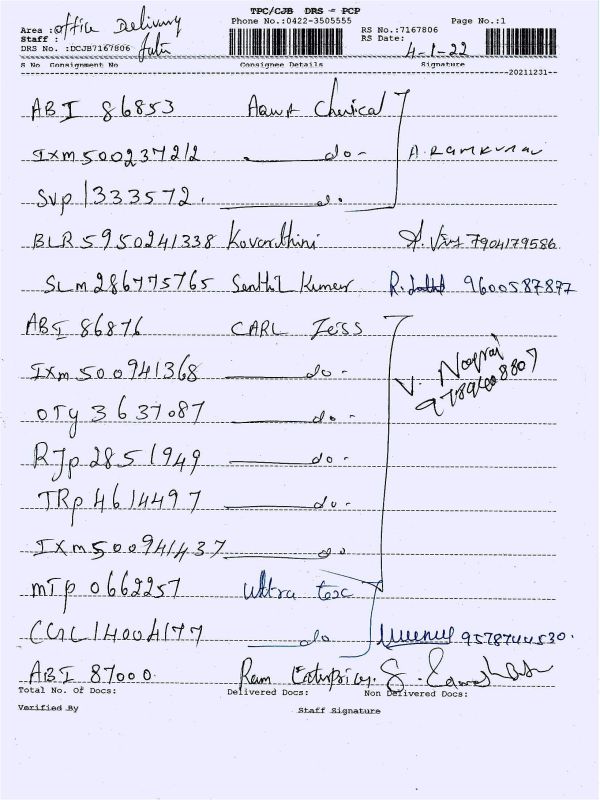 TPC/CJB DRS - PCP
Area : office Delivery Phone No.:0422-3505555 RS No.:7167806 Page No.:1
Staff : RS Date: 4-1-22
DRS No. :DCJB7167806
S No Consignment No Consignee Details Signature
20211231--
ABI 86853 Chemical
IXM500237212 do - A. RAMKUMAR
SVP 1333572. do.
BLR5950241338 Kovarthini 7904179586
SLM286775765 Senthil Kumar R. 9600587877
ABI 86876 CARL ZeISS
IXM500941368 do - V. Nagraj
OTY 3637087 do - 9789608807
RJP 2851949 do -
TRP 4614497 do -
IXM500941437 do
MTP 0662257 Ultra tex
CGL14004177 do 9578744530.
ABI 87000. Ram Enterprices. S.
Total No. Of Docs: Delivered Docs: Non Delivered Docs:
Verified By Staff Signature